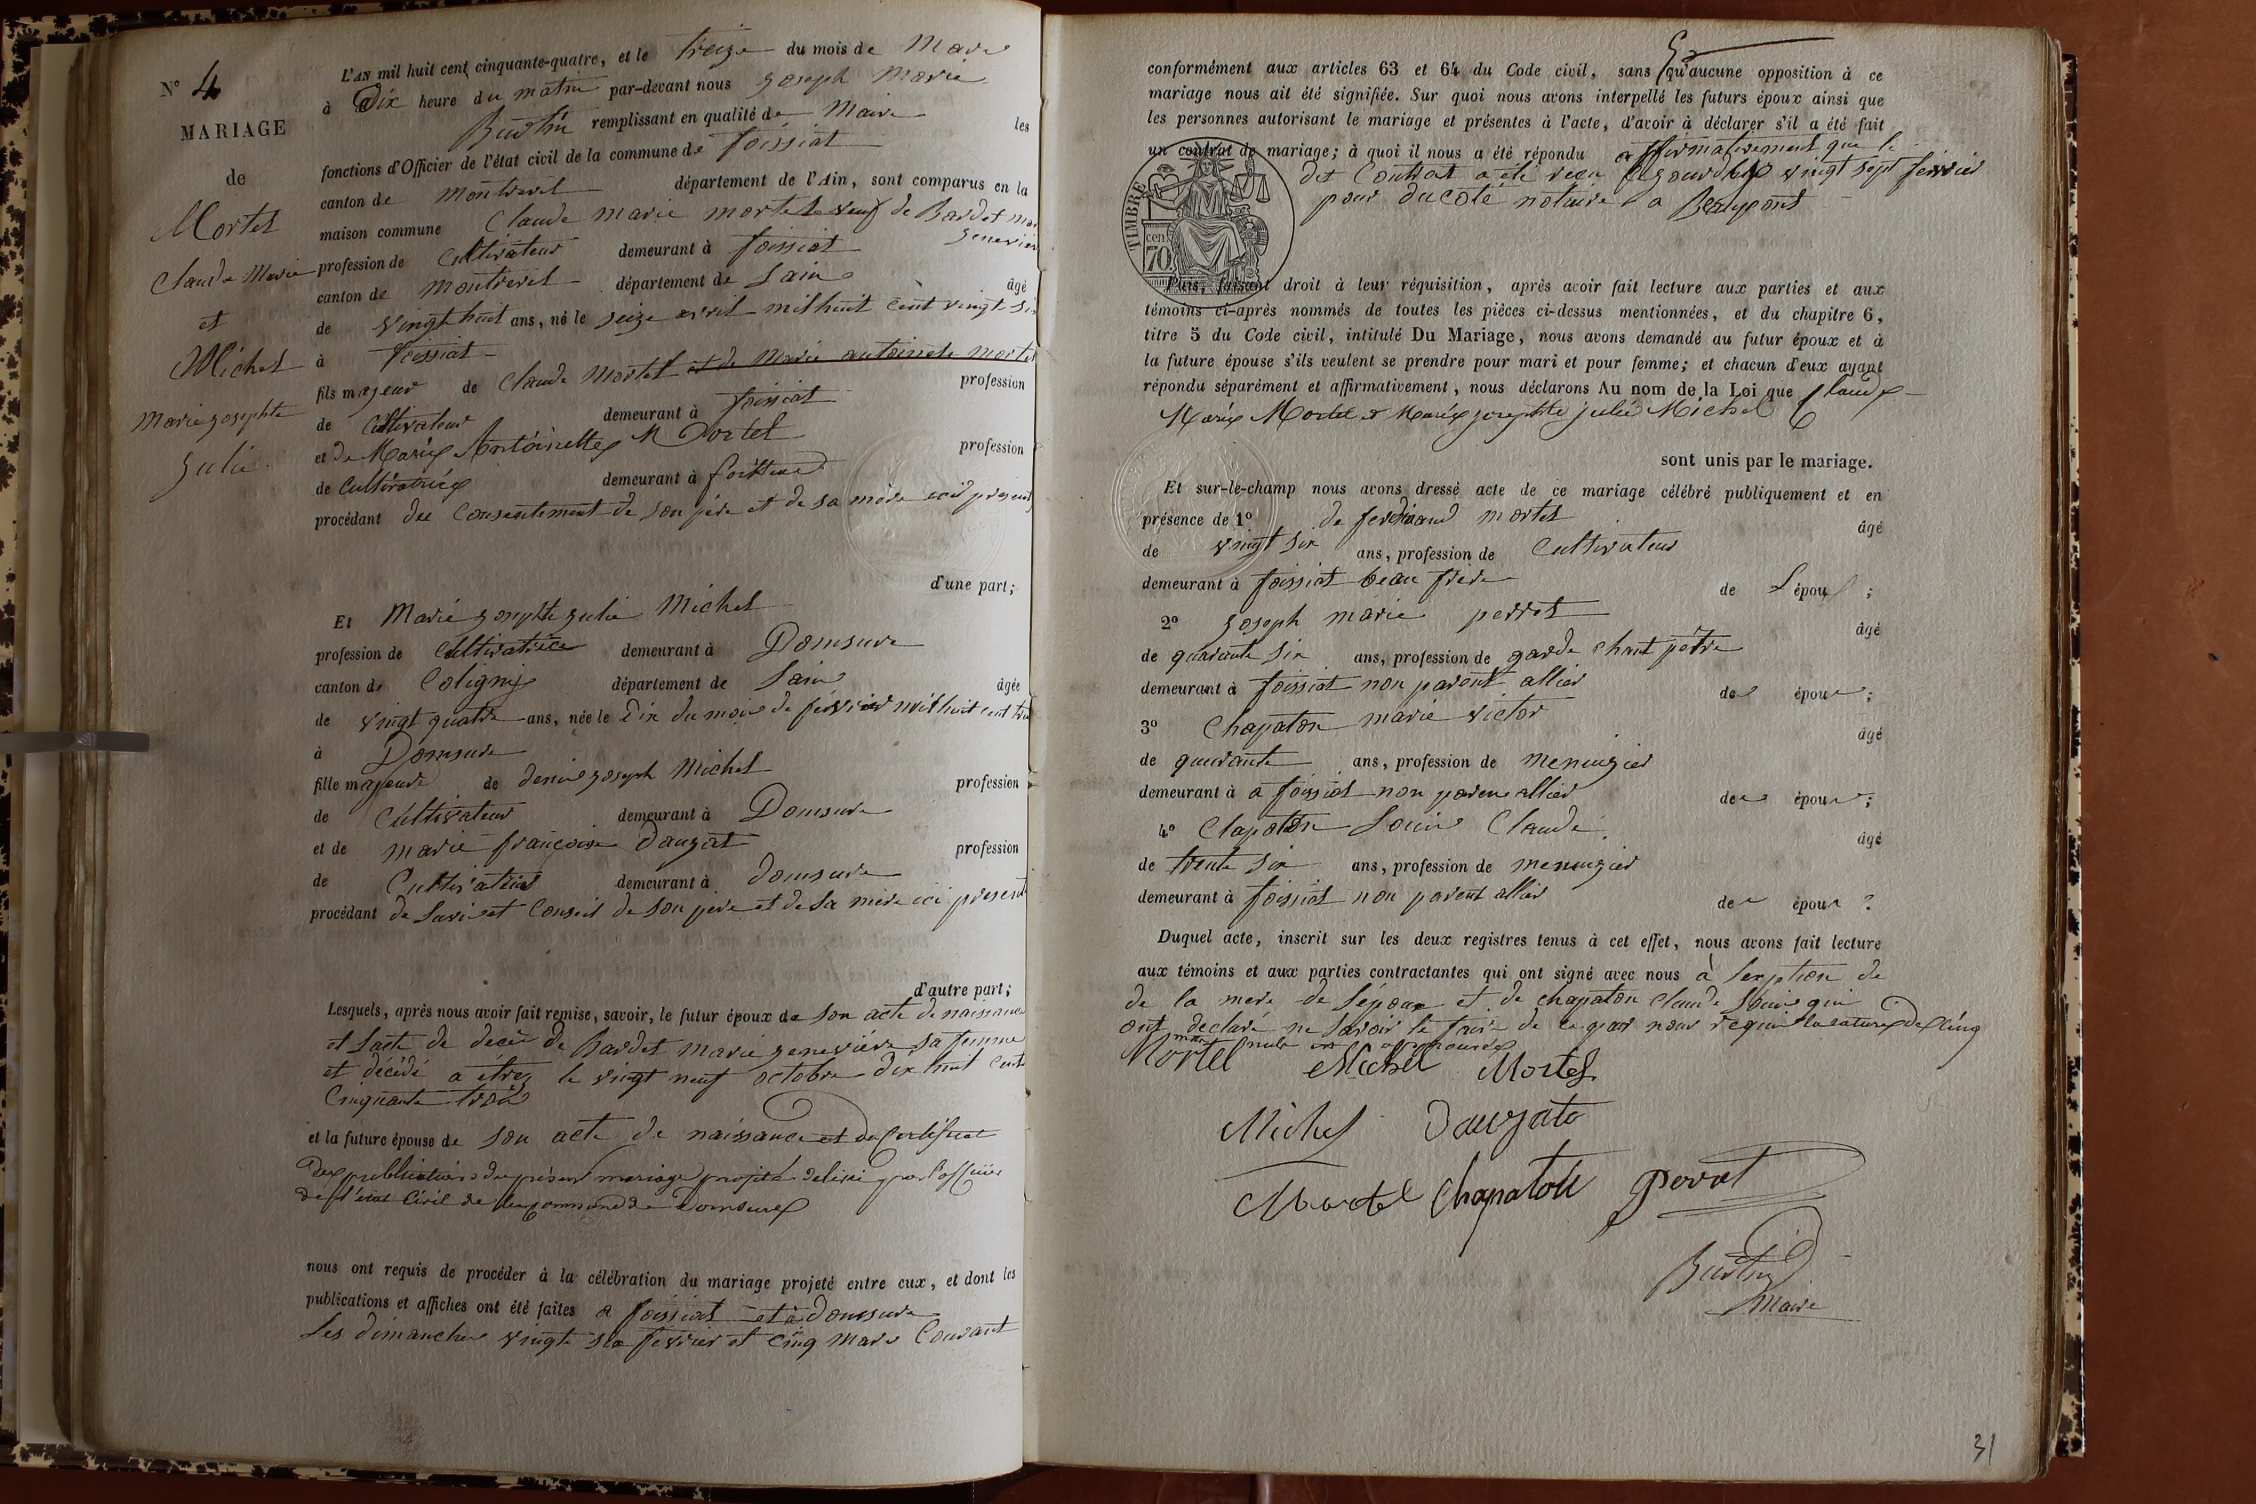 N° 4
MARIAGE
de
Mortel
Claude Marie
et
Michel
Marie josephte
julie
L'AN mil huit cent cinquante-quatre, et le treize du mois de Mars
à Dix heure du matin par-devant nous joseph Marie
remplissant en qualité de Maire les
fonctions d'Officier de l'état civil de la commune de foissiat
canton de montrevel département de l'Ain, sont comparus en la
maison commune Claude marie mortel veuf de Bardet marie
genevieve
profession de Cultivateur demeurant à foissiat
canton de montrevel département de Lain âgé
de vingt huit ans, né le seize avril mil huit cent vingt six
à foissiat
fils majeur de Claude Mortel et de Marie antoinete mortel profession
de Cultivateur demeurant à foissiat
et de Marie Antoinette Mortel profession
de Cultivatrice demeurant à foissiat
procédant du Consentement de son père et de sa mère ici présents
d'une part;
Et Marie josephte julie Michel
profession de Cultivatrice demeurant à Domsure
canton de Coligny département de Lain âgée
de vingt quatre ans, née le Dix du mois de février mil huit cent trente
à Domsure
fille majeure de denis joseph Michel profession
de Cultivateur demeurant à Domsure
et de marie françoise Dauzat profession
de Cultivateur demeurant à domsure
procédant de Lavis et Conseil de son père et de sa mère ici present
d'autre part;
Lesquels, après nous avoir fait remise, savoir, le futur époux de son acte de naissance
et Lacte de decès de Bardet Marie genevière sa femme
et décédé a étrez le vingt neuf octobre dix huit cent
Cinquante trois
et la future épouse de son acte de naissance et du Certificat
des publications du présent mariage projeté délivré par l'officier
de l'état Civil de la commune de Domsure
nous ont requis de procéder à la célébration du mariage projeté entre eux, et dont les
publications et affiches ont été faites a foissiat et à Domsure
Les dimanches vingt six fevrier et cinq mars Courant
conformément aux articles 63 et 64 du Code civil, sans qu'aucune opposition à ce
mariage nous ait été signifiée. Sur quoi nous avons interpellé les futurs époux ainsi que
les personnes autorisant le mariage et présentes à l'acte, d'avoir à déclarer s'il a été fait
un contrat de mariage; à quoi il nous a été répondu affirmativement que le
dit Contrat a été reçu vingt sept fevrier
pour ducoté notaire a Beaupont
TIMBRE
cen
70
Puis, faisant droit à leur réquisition, après avoir fait lecture aux parties et aux
témoins ci-après nommés de toutes les pièces ci-dessus mentionnées, et du chapitre 6,
titre 5 du Code civil, intitulé Du Mariage, nous avons demandé au futur époux et à
la future épouse s'ils veulent se prendre pour mari et pour femme; et chacun d'eux ayant
répondu séparément et affirmativement, nous déclarons Au nom de la Loi que Claude
Marie Mortel et Marie josephte julie Michel
sont unis par le mariage.
Et sur-le-champ nous avons dressé acte de ce mariage célébré publiquement et en
présence de 1° de ferdinand mortel âgé
de vingt six ans, profession de Cultivateur
demeurant à foissiat beau frère de L'époux ;
2° joseph marie perret âgé
de quarante six ans, profession de garde champêtre
demeurant à foissiat non parent allier des époux ;
3° Chapaton marie victor âgé
de quarante ans, profession de menuzier
demeurant à a foissiat non parent allier des époux ;
4° Chapaton Louis Claude âgé
de trente six ans, profession de menuzier
demeurant à foissiat non parent allier des époux
Duquel acte, inscrit sur les deux registres tenus à cet effet, nous avons fait lecture
aux témoins et aux parties contractantes qui ont signé avec nous à lexption de
de la mere de Lépoux et de chapaton claude Louis qui
ont declaré ne savoir le faire de ce par nous requis la rature de cinq
mots nuls
Mortel Michel Mortel
Michel Dauzat
Mortel Chapaton perret
Maire
31